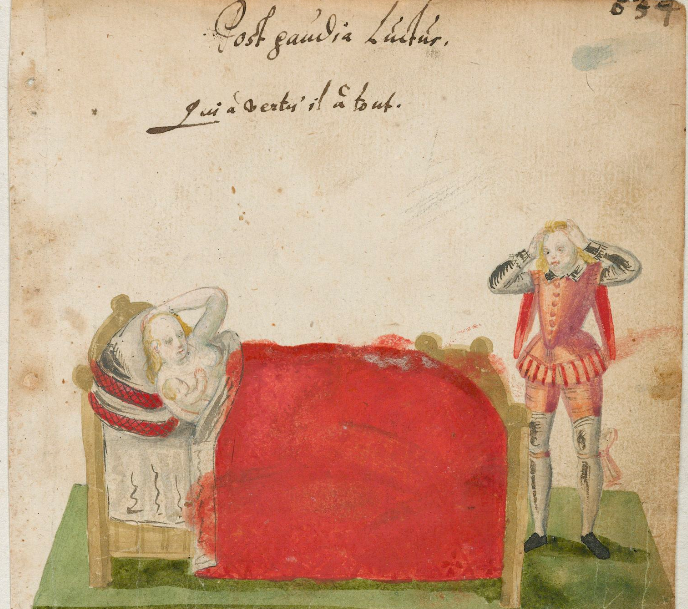 Post gaudia Luctus.
Qui à vertu il à tout.